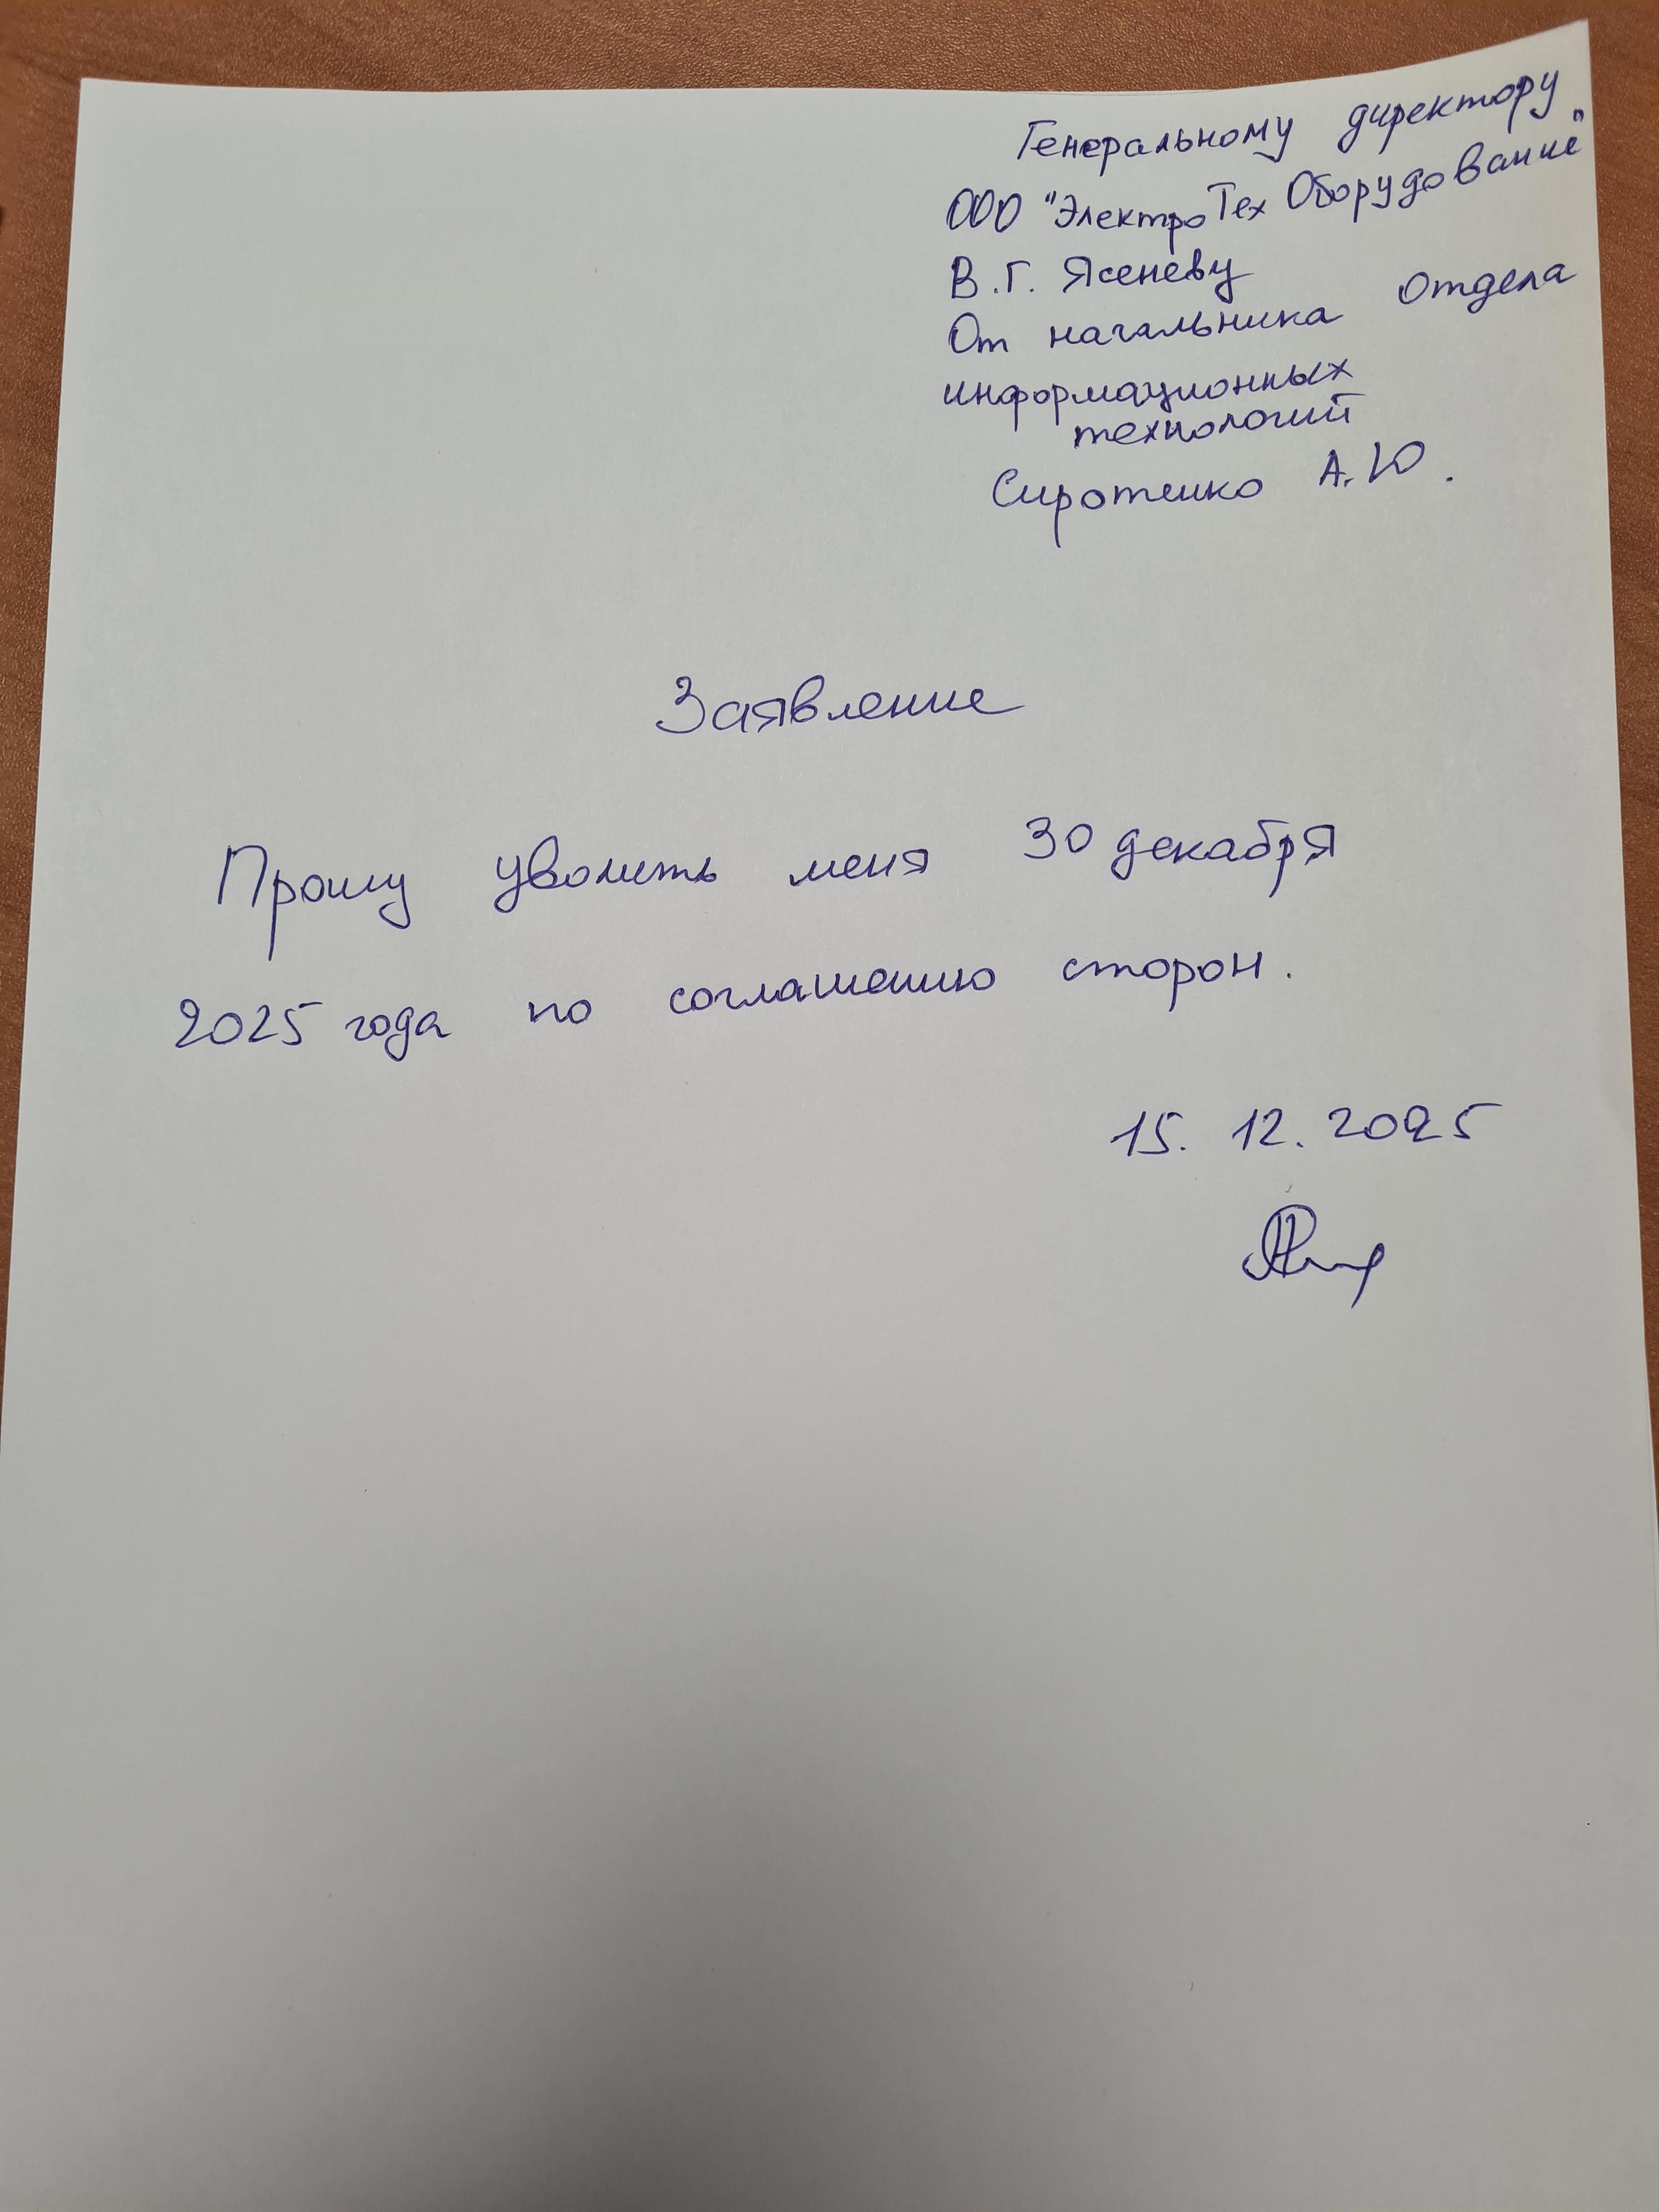 Генеральному директору
ООО "ЭлектроТех Оборудование"
В.Г. Ясеневу
От начальника отдела
информационных
технологий
Сиротенко А.Ю.
Заявление
Прошу уволить меня 30 декабря
2025 года по соглашению сторон.
15.12.2025